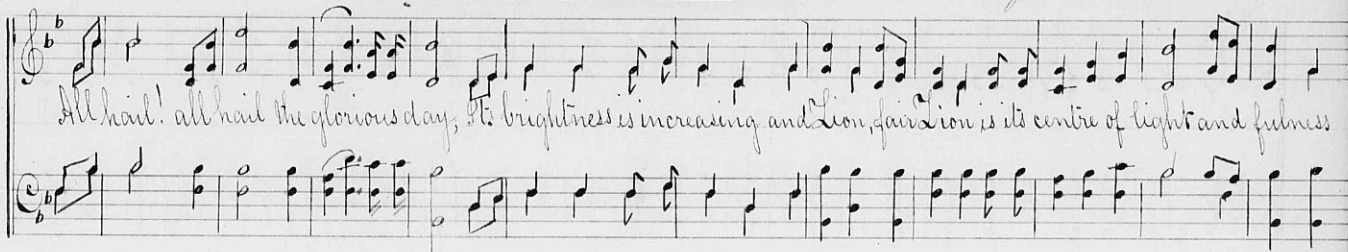 All hail! all hail the glorious day, Its brightness is increasing and Zion, fair Zion is its centre of light and fulness